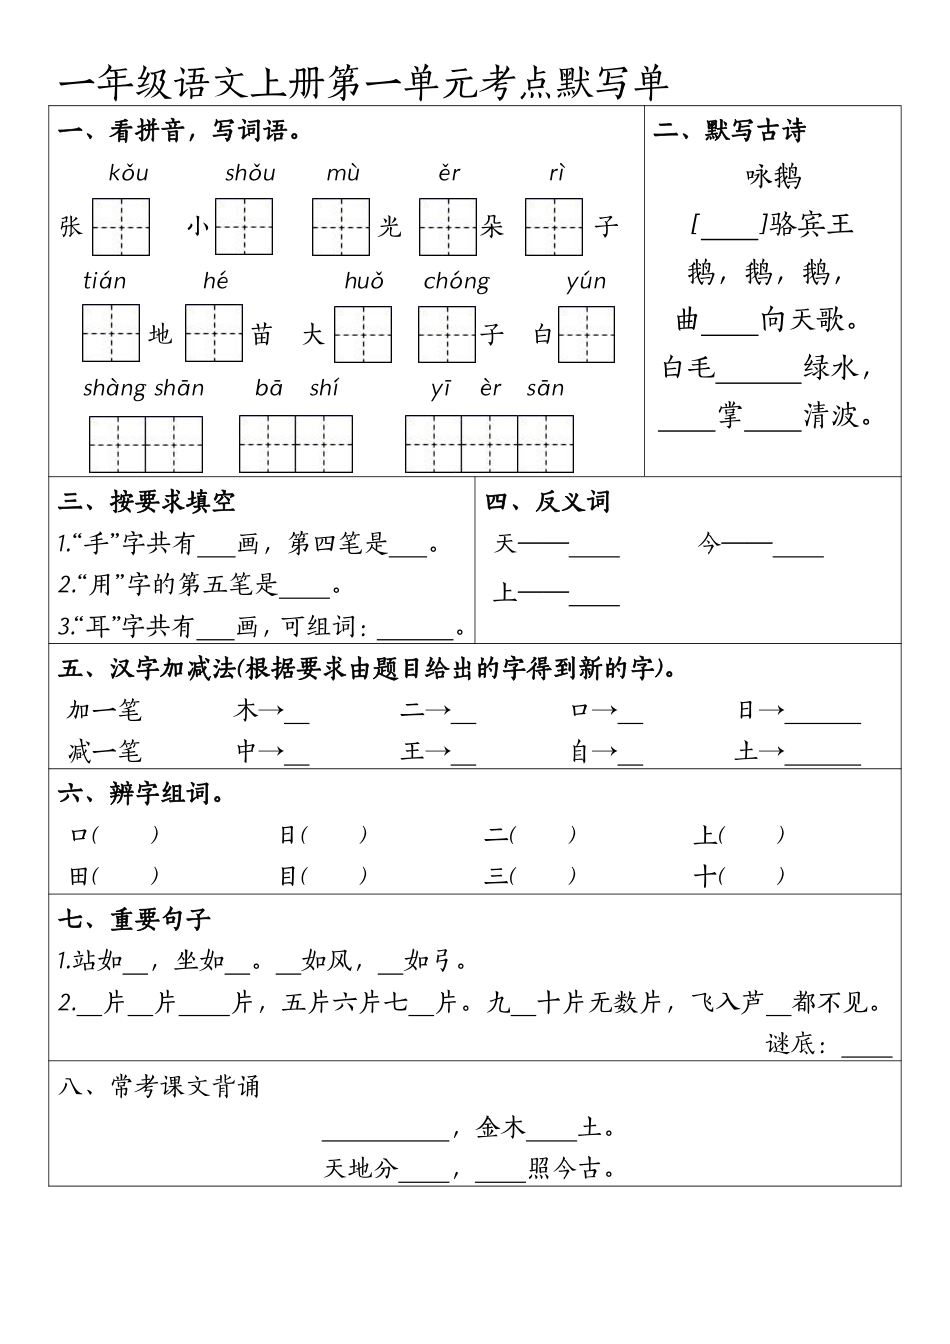 一年级语文上册第一单元考点默写单
一、看拼音，写词语。
kǒu shǒu mù ěr rì
张 小 光 朵 子
tián hé huǒ chóng yún
地 苗 大 子 白
shàng shān bā shí yī èr sān
二、默写古诗
咏鹅
[____]骆宾王
鹅，鹅，鹅，
曲____向天歌。
白毛______绿水，
____掌____清波。
三、按要求填空
1.“手”字共有___画，第四笔是___。
2.“用”字的第五笔是____。
3.“耳”字共有___画，可组词：______。
四、反义词
天——____ 今——____
上——____
五、汉字加减法(根据要求由题目给出的字得到新的字)。
加一笔 木→__ 二→__ 口→__ 日→______
减一笔 中→__ 王→__ 自→__ 土→______
六、辨字组词。
口( ) 日( ) 二( ) 上( )
田( ) 目( ) 三( ) 十( )
七、重要句子
1.站如__，坐如__。__如风，__如弓。
2.__片__片____片，五片六片七__片。九__十片无数片，飞入芦__都不见。
谜底：____
八、常考课文背诵
__________，金木____土。
天地分____，____照今古。